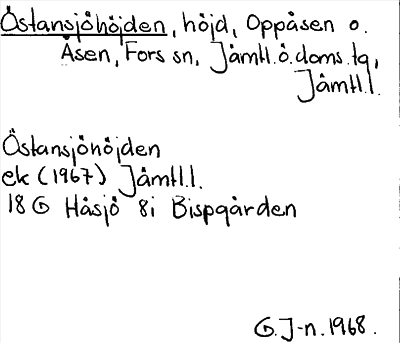 Östansjöhöjden, höjd, Oppåsen o.
Åsen, Fors sn, Jämtl.ö.doms.tg,
Jämtl.l.
Östansjöhöjden
ek (1967) Jämtl.l.
18 G Håsjö 8i Bispgården
G.J-n. 1968.